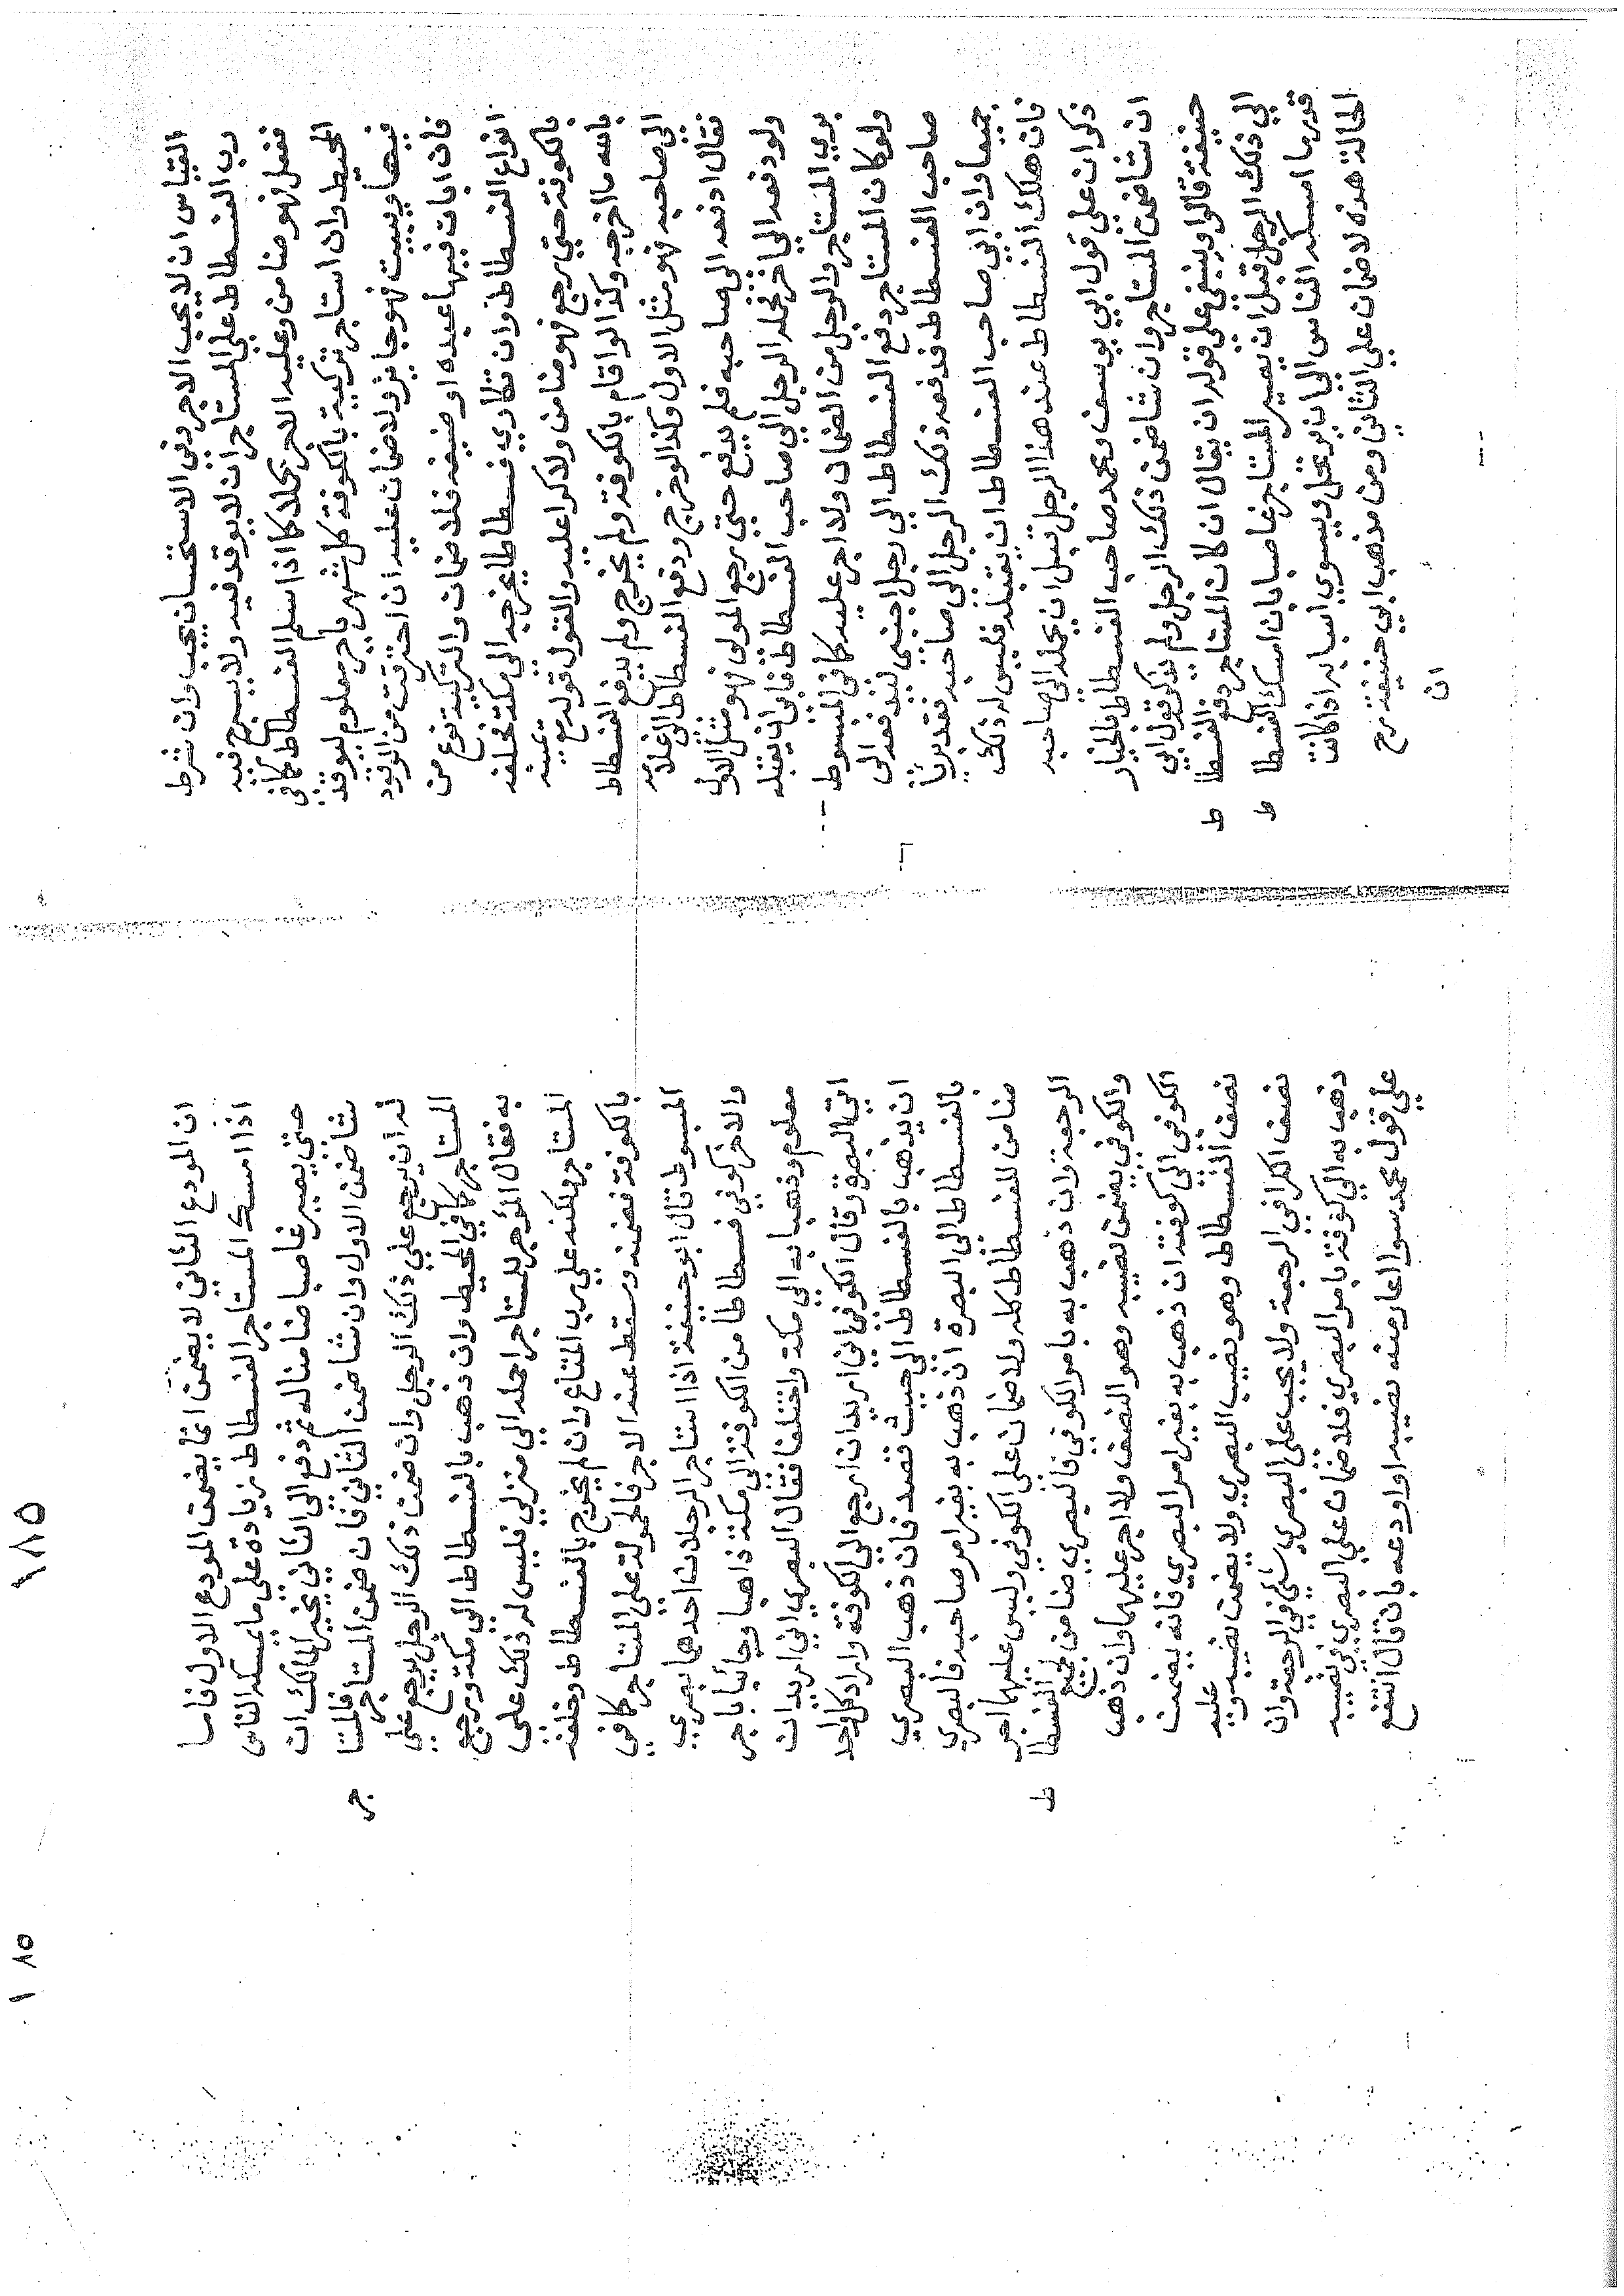 القياس ان لا يجب الاجر وفي الاستحسان يجب وان شرط
رب الفسطاط علي المستاجر ان لا يوقد فيه ولا يسرج فيه
ففعل فهو ضامن وعليه الاجر كملا كما اذا سلم الفسطاط كذا في
المحيط وان استاجر تركية بالكوفة كل شهر باجر معلوم ليوقد
فيها ويبيت فهو جايز ولا ضمان عليه ان احترقت من الوقود
فان ابات فيها عبده او ضيفه فلا ضمان والتركية نوع من
انواع الفسطاط وان تكاري فسطاطا يخرجه الي مكة فخلفه
بالكوفة حتي رجع فهو ضامن ولا كرا عليه والقول قوله مع يمينه
بالله ما اخرجه وكذا لو اقام بالكوفة ولم يخرج ولم يدفع الفسطاط
الي صاحبه فهو مثل الاول وكذا لو خرج ودفع الفسطاط الي غلامه
فقال ادفعه الي صاحبه فلم يدفع حتي رجع المولي فهو مثل الاول
ولو دفعه الي اخر فحمله الرجل الي صاحب الفسطاط فابي ان يقبله
بري المستاجر والرجل من الضمان ولا اجر عليه كذا في المبسوط
ولو كان المستاجر دفع الفسطاط الي رجل اجنبي ليدفعه الي
صاحب الفسطاط فدفعه ذلك الرجل الي صاحبه فقد بريا
جميعا وان ابي صاحب الفسطاط ان يقبله فليس له ذلك
فان هلك الفسطاط عند هذا الرجل قبل ان يحمله الي صاحبه
ذكر ان علي قول ابي يوسف ومحمد صاحب الفسطاط بالخيار
ان شاضمن المستاجر وان شاضمن ذلك الرجل ولم يذكر قول ابي
حنيفة قالوا وينبغي علي قوله ان يقال ان كان المستاجر دفع الفسطاط
الي ذلك الرجل قبل ان يصير المستاجر غاصبا بان امسك الفسطاط
قدر ما امسكه الناس الي ان يرتحل ويسوي اسبابه اذا كانت
الحالة هذه لا ضمان علي الثاني ومن مذهب ابي حنيفة رح
ان
١٨٥
ان المودع الثاني لا يضمن انما يضمن المودع الاول فاما
اذا امسك المستاجر الفسطاط زيادة علي ما يمسكه الناس
حتي يصير غاصبا ضامنا له ثم دفع الي الثاني يخير المالك ان
شاضمن الاول وان شاضمن الثاني فان ضمن المستاجر فالمستاجر
له ان يرجع علي ذلك الرجل وان ضمن ذلك الرجل يرجع علي
المستاجر كذا في المحيط وان ذهب بالفسطاط الي مكة ورجع
به فقال المؤجر للمستاجر احمله الي منزلي فليس له ذلك علي
المستاجر ولكنه علي رب المتاع وان لم يخرج بالفسطاط وخلفه
بالكوفة فضمنه وسقط عنه الاجر فالحمولة علي المستاجر كذا في
المبسوط قال ابو حنيفة اذا استاجر الرجلان احدهما بصري
والاخر كوفي فسطاطا من الكوفة الي مكة ذاهبا وجائيا باجر
معلوم وذهبا به الي مكة واختلفا فقال البصري اني اريد ان
اتي البصرة وقال الكوفي اني اريد ان ارجع الي الكوفة واراد كل واحد
ان يذهب بالفسطاط الي حيث قصد فان ذهب البصري
بالفسطاط الي البصرة ان ذهب به بغير امر صاحبه فالبصري
ضامن للفسطاط كله ولا ضمان علي الكوفي وليس عليهما اجر
الرجعة وان ذهب به بامر الكوفي فالبصري ضامن لجميع الفسطاط
والكوفي يضمن نصيبه وهو النصف ولا اجر عليهما وان ذهب
الكوفي الي كوفة ان ذهب به بغير امر البصري فانه يضمن
نصف الفسطاط وهو نصيب البصري ولا يضمن نصيبه وعليه
نصف الكرا في الرجعة ولا يجب علي البصري شي في الرجعة وان
ذهب به الي كوفة بامر البصري فلا ضمان علي البصري في نصيبه
علي قول محمد سوا اعار منه نصيبه او اودعه بان قال انتفع
١٨٥